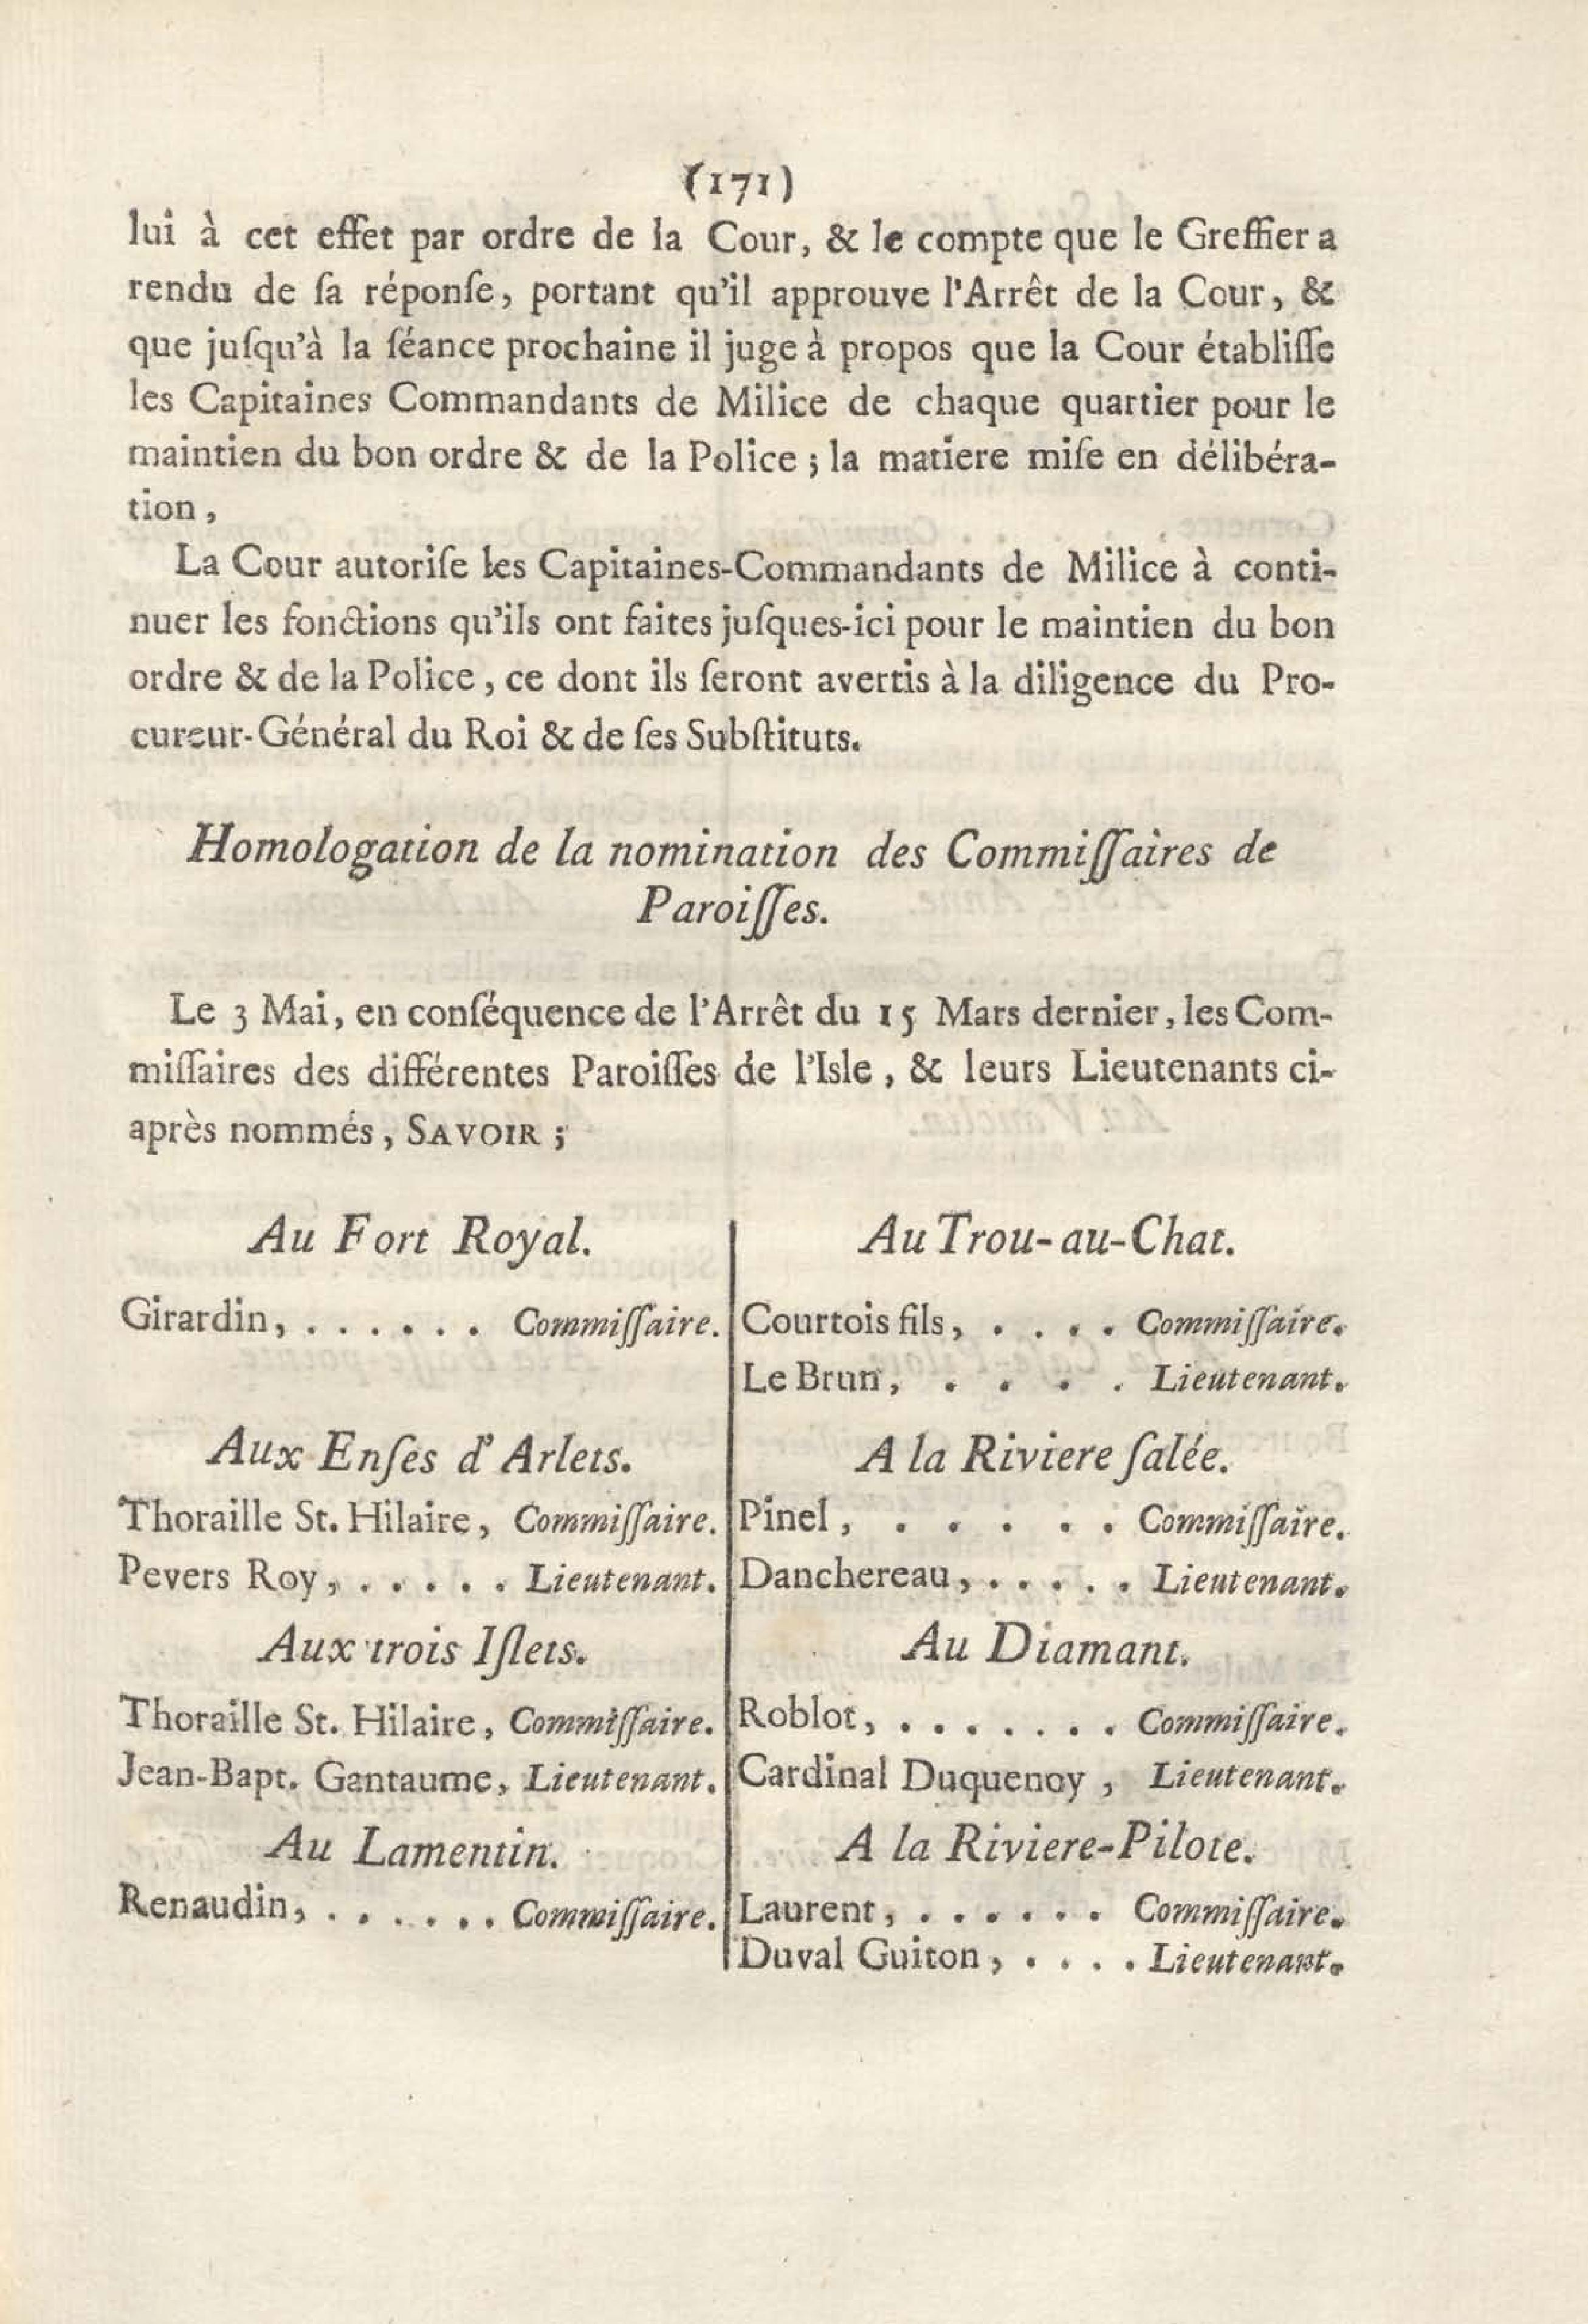 (171)
lui à cet effet par ordre de la Cour, & le compte que le Greffier a
rendu de ſa réponſe, portant qu'il approuve l'Arrêt de la Cour, &
que juſqu'à la ſéance prochaine il juge à propos que la Cour établiſſe
les Capitaines Commandants de Milice de chaque quartier pour le
maintien du bon ordre & de la Police ; la matiere miſe en délibéra-
tion,
La Cour autoriſe les Capitaines-Commandants de Milice à conti-
nuer les fonctions qu'ils ont faites juſques-ici pour le maintien du bon
ordre & de la Police, ce dont ils ſeront avertis à la diligence du Pro-
cureur-Général du Roi & de ſes Subſtituts.
Homologation de la nomination des Commiſſaires de
Paroiſſes.
Le 3 Mai, en conſéquence de l'Arrêt du 15 Mars dernier, les Com-
miſſaires des différentes Paroiſſes de l'Isle, & leurs Lieutenants ci-
après nommés, SAVOIR ;
Au Fort Royal.
Girardin, . . . . . . Commiſſaire.
Aux Enſes d'Arlets.
Thoraille St. Hilaire, Commiſſaire.
Pevers Roy, . . . . . Lieutenant.
Aux trois Iſlets.
Thoraille St. Hilaire, Commiſſaire.
Jean-Bapt. Gantaume, Lieutenant.
Au Lamentin.
Renaudin, . . . . . . Commiſſaire.
Au Trou-au-Chat.
Courtois fils, . . . . Commiſſaire.
Le Brun, . . . . Lieutenant.
A la Riviere ſalée.
Pinel, . . . . . Commiſſaire.
Danchereau, . . . . . Lieutenant.
Au Diamant.
Roblot, . . . . . . . Commiſſaire.
Cardinal Duquenoy, Lieutenant.
A la Riviere-Pilote.
Laurent, . . . . . . Commiſſaire.
Duval Guiton, . . . . Lieutenant.